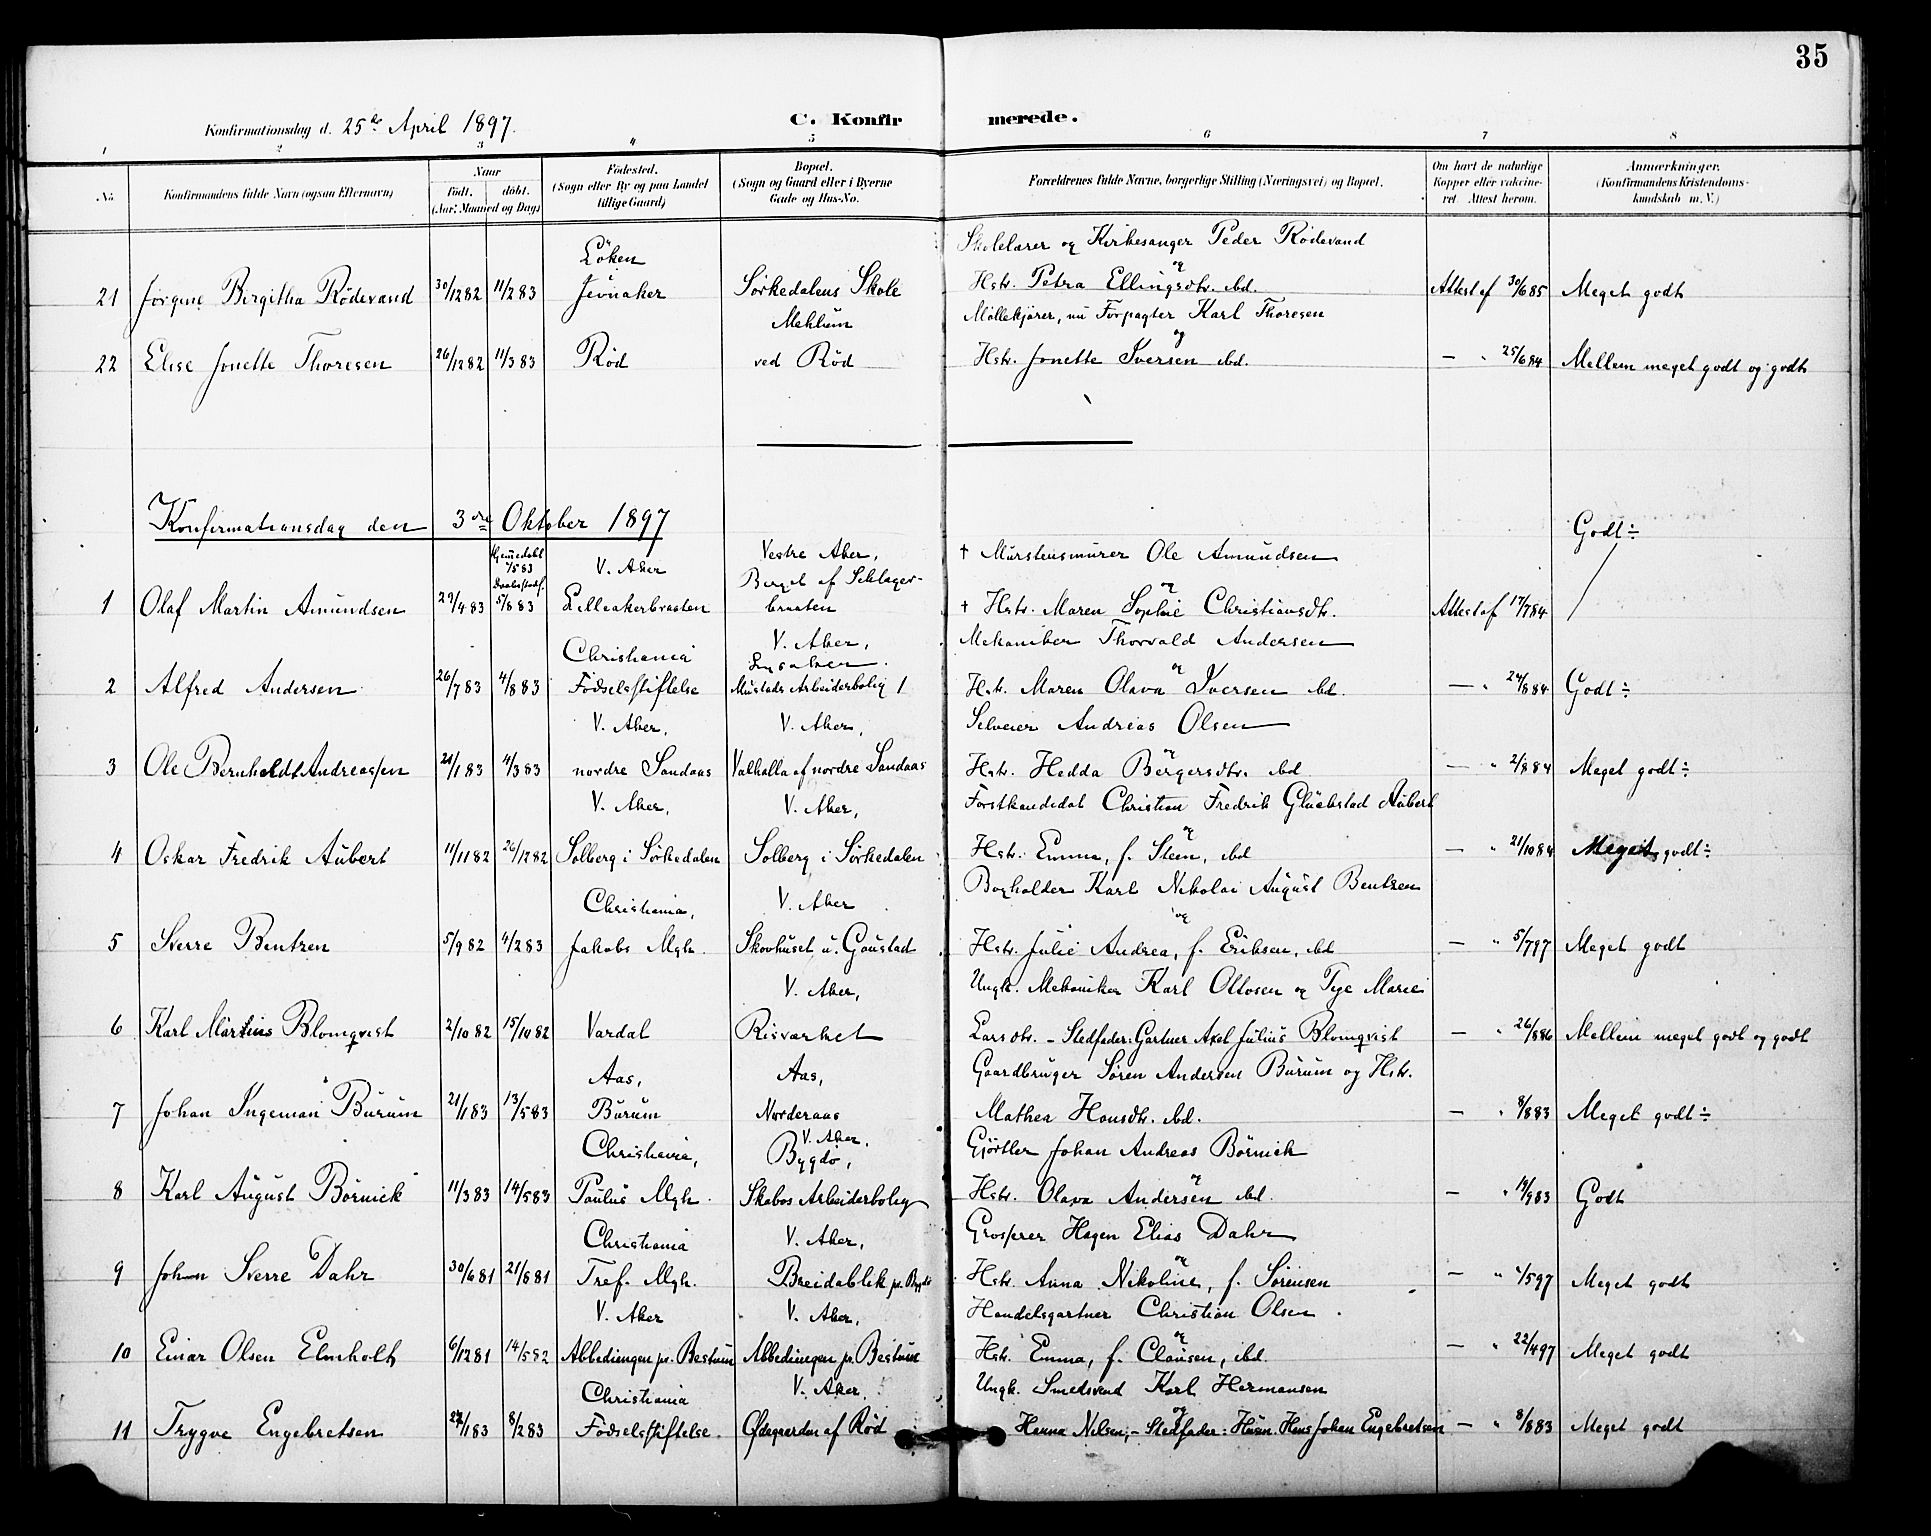 35
Konfirmationsdag d. 25de April 1897.
C. Konfirmerede.
1 2 3 4 5 6 7 8
No. Konfirmandens fulde Navn (ogsaa Efternavn) Naar født. døbt. (Aar, Maaned og Dag) Fødested. (Sogn eller By og paa Landet tillige Gaard) Bopæl. (Sogn og Gaard eller i Byerne Gade og Hus-No. Forældrenes fulde Navne, borgerlige Stilling (Næringsvei) og Bopæl. Om havt de naturlige Kopper eller vakcineret. Attest herom. Anmærkninger. (Konfirmandens Kristendomskundskab m. V.)
Løken Skolelærer og Kirkesanger Peder Rödevand og
21 Jörgine Birgitha Rödevand 30/12 82 11/2 83 Jevnaker Sörkedalens Skole Hstr. Petra Ellingsdtr. ibd. Attest af 30/6 85 Meget godt
Meklum Möllekjører, nu Forpagter Karl Thoresen og
22 Elise Jonette Thoresen 26/12 82 11/3 83 Röd ved Röd Hstr. Jonette Iversen ibd. — " 25/6 84 Mellem meget godt og godt
Konfirmationsdag den 3die Oktober 1897
V. Aker Vestre Aker, † Murstensmurer Ole Amundsen og Godt ÷
1 Olaf Martin Amundsen 29/4 83 5/8 83 Lilleakerbraaten Berget af Schlagerbraaten † Hstr. Maren Sophie Christiansdtr. Attest af 17/7 84
Christiania V. Aker, Lysaker. Mekaniker Thorvald Andersen og
2 Alfred Andersen 26/7 83 4/8 83 Födselsstiftelse Mustads Arbeiderbolig 1 Hstr. Maren Olava Iversen ibd. — " 24/8 84 Godt ÷
V. Aker, V. Aker, Selveier Andreas Olsen og
3 Ole Bernhardt Andreassen 21/1 83 4/3 83 nordre Sandaas Valhalla af nordre Sandaas Hstr. Hedda Bergersdtr. ibd — " 2/8 84 Meget godt ÷
V. Aker, V. Aker, Forstkandidat Christian Fredrik Glückstad Aubert og
4 Oskar Fredrik Aubert 11/11 82 26/12 82 Solberg i Sörkedalen Solberg i Sörkedalen Hstr. Emma, f. Steen, ibd — " 21/10 84 Meget godt ÷
Christiania, V. Aker Bogholder Karl Nikolai August Bentzen og
5 Sverre Bentzen 5/9 82 4/2 83 Jakobs Mgh. Skovhuset u. Gaustad Hstr. Julie Andrea, f. Eriksen, ibd — " 5/7 97 Meget godt
V. Aker, Ungk. Mekaniker Karl Ottosen og Pige Marie
6 Karl Martius Blomqvist 2/10 82 15/10 82 Vardal Risværket Larsdtr. - Stedfader: Gartner Axel Julius Blomqvist — " 26/8 86 Mellem meget godt og godt
Aas, Aas, Gaardbruger Søren Andersen Burum og Hstr.
7 Johan Ingeman Burum 21/1 83 13/5 83 Burum Norderaas Mathea Hansdtr. ibd. — " 8/8 83 Meget godt ÷
Christiania, V. Aker. Bygdö, Gjörtler Johan Andreas Börnick og
8 Karl August Börnick 11/3 83 14/5 83 Paulus Mgh. Skabos Arbeiderbolig Hstr. Olava Andersen ibd. — " 19/9 83 Godt
Christiania V. Aker, Grosserer Hagen Elias Dahr og
9 Johan Sverre Dahr 30/6 81 21/8 81 Tref. Mgh. Breidablik pr. Bygdö Hstr. Anna Nikoline, f. Sørensen — " /5 97 Meget godt
V. Aker V. Aker, Handelsgartner Christian Olsen og
10 Einar Olsen Elmholt 6/12 81 14/5 82 Abbediengen pr. Bestum Abbediengen pr. Bestum Hstr. Emma, f. Clausen, ibd. — " 22/4 97 Meget godt
Christiania V. Aker. Ungk. Smedsvend Karl Hermansen og
11 Trygve Engebretsen 24/1 83 8/2 83 Födselsstiftelse. Ødegaarden af Röd Hanna Nilsen, - Stedfader: Husm. Hans Johan Engebretsen — " 8/8 83 Meget godt